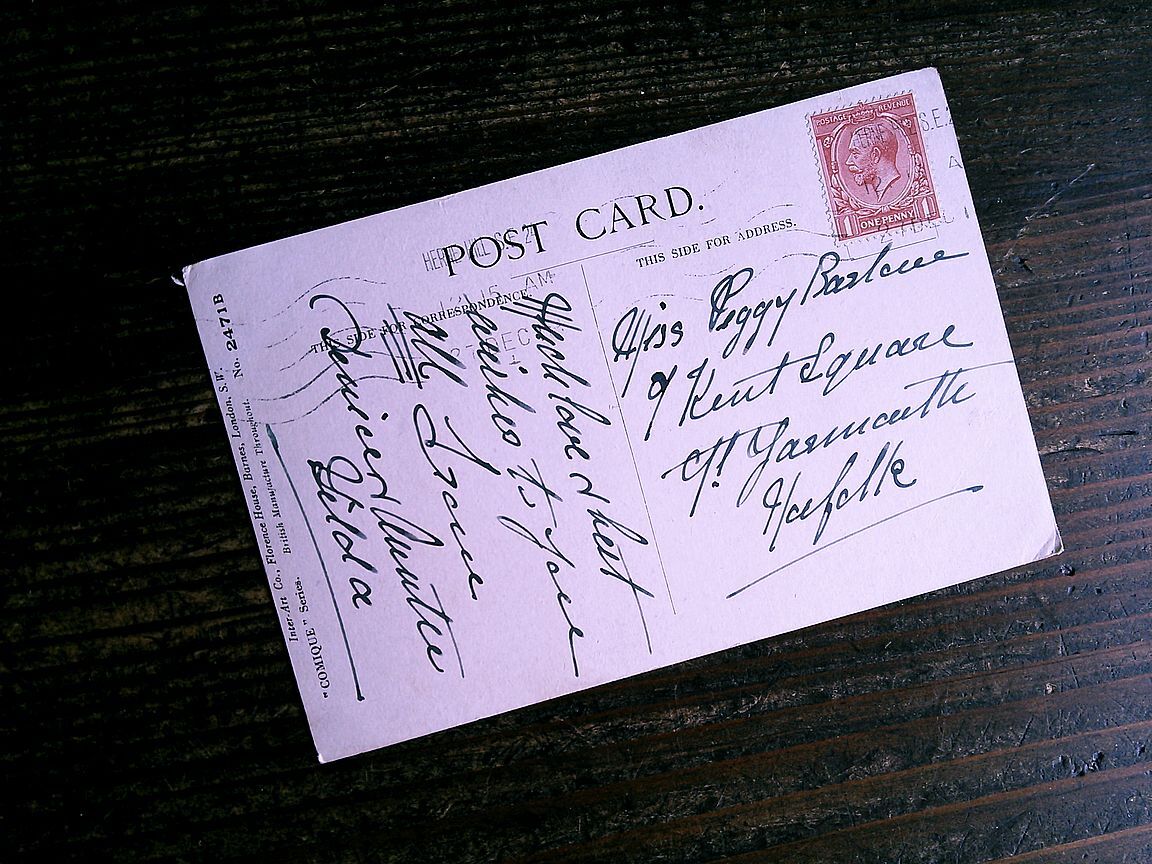 POST CARD.
THIS SIDE FOR CORRESPONDENCE.
THIS SIDE FOR ADDRESS.
POSTAGE REVENUE
1 ONE PENNY 1
HERNE HILL S.E.24
12.15 AM
27 DEC
S.E.2
Miss Peggy Barlow
9 Kent Square
Gt. Yarmouth
Norfolk
Much love & best
wishes to you
all
Gilda
Inter-Art Co., Florence House, Barnes, London, S.W.
British Manufacture Throughout.
"COMIQUE" Series.
No. 2471B